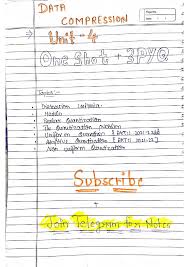 DATA
COMPRESSION
Unit - 4
One Shot + 3PYQ
Topics :-
Distortion Criteria
Models
Scalar Quantization
The Quantization problem
Uniform Quantization
Adaptive Quantization
Non uniform Quantization
Subscribe
+
Join Telegram for Notes